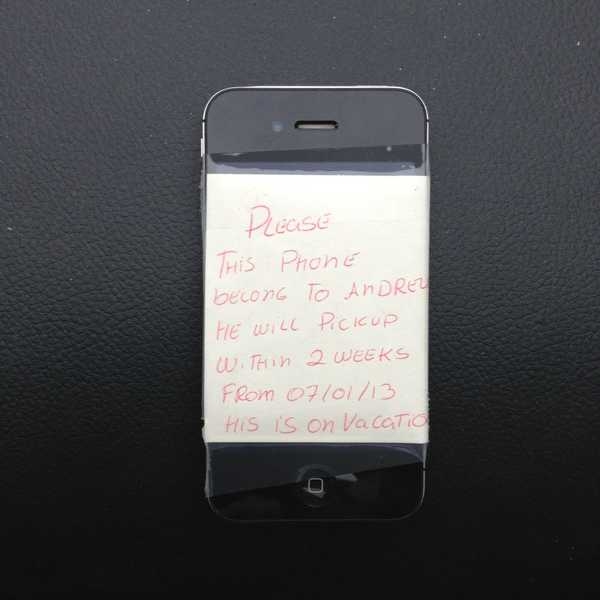 Please
This Phone
belong To Andrew
He will Pickup
within 2 weeks
From 07/01/13
His is on Vacatio